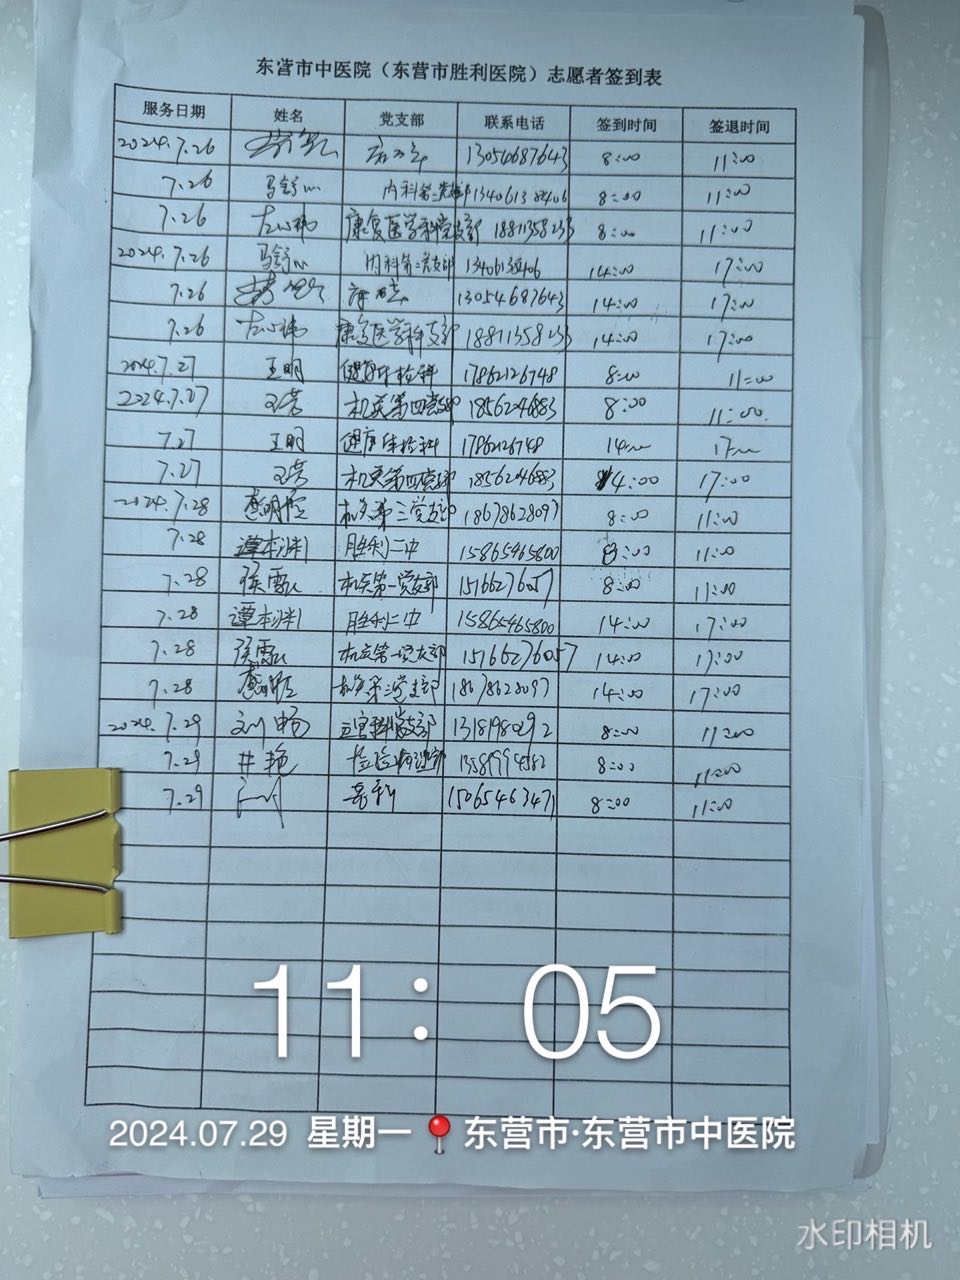 东营市中医院（东营市胜利医院）志愿者签到表
服务日期 姓名 党支部 联系电话 签到时间 签退时间
2024.7.26 13054687643 8:00 11:00
7.26 马舒心 内科第二党支部 8:00 11:00
7.26 左小祎 康复医学科党支部 18811358233 8:00 11:00
2024.7.26 马舒心 内科第二党支部 14:00 17:00
7.26 13054687643 14:00 17:00
7.26 左小祎 康复医学科支部 18811358233 14:00 17:00
2024.7.27 王明 健康体检科 17862126748 8:00 11:00
2024.7.27 机关第四党支部 18562046883 8:00 11:00
7.27 王明 健康体检科 17862126748
7.27 机关第四党支部 18562046883 14:00 17:00
2024.7.28 机关第三党支部 18678628097 8:00 11:00
7.28 谭本渊 胜利二中 15865465800 8:00 11:00
7.28 机关第一党支部 15166276057 8:00 11:00
7.28 谭本渊 胜利二中 15865465800 14:00 17:00
7.28 机关第一党支部 15166276057 14:00 17:00
7.28 党支部 18678628097 14:00 17:00
2024.7.29 刘畅 五官科党支部 13181980192 8:00 11:00
7.29 井艳 8:00 11:00
7.29 15065463471 8:00 11:00
11:05
2024.07.29 星期一 东营市·东营市中医院
水印相机